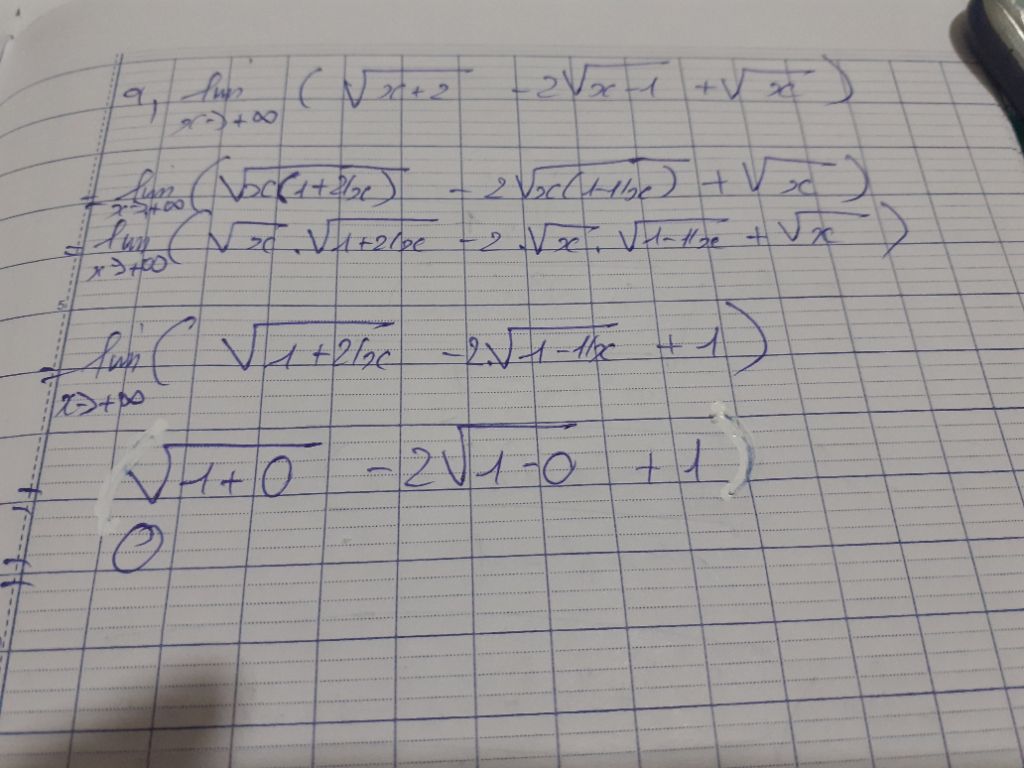 a, lim x->+∞ ( √x+2 - 2√x-1 + √x )
= lim x->+∞ ( √x(1+2/x) - 2√x(1-1/x) + √x )
= lim x->+∞ ( √x . √1+2/x - 2.√x . √1-1/x + √x )
= lim x->+∞ ( √1+2/x - 2.√1-1/x + 1 )
= ( √1+0 - 2√1-0 + 1 )
= 0